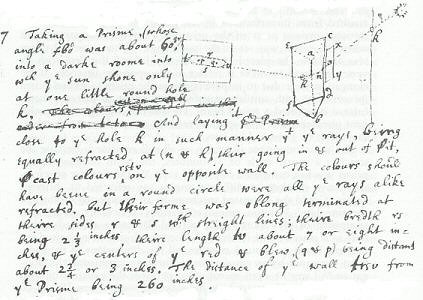 7 Taking a Prisme, (whose
angle fbd was about 60gr)
into a darke roome into
wch ye sun shone only
at one little round hole
k. And laying it
close to ye hole k in such manner yt ye rays, being
equally refracted at (n & h) their going in & out of it,
cast colours rstv on ye opposite wall. The colours should
have beene in a round circle were all ye rays alike
refracted, but their forme was oblong terminated at
theire sides r & s wth streight lines; theire bredth rs
being 2 1/3 inches, theire length tv about 7 or eight in=
ches, & ye centers of ye red & blew, (q & p) being distant
about 2 3/4 or 3 inches. The distance of ye wall from
ye Prisme being 260 inches.